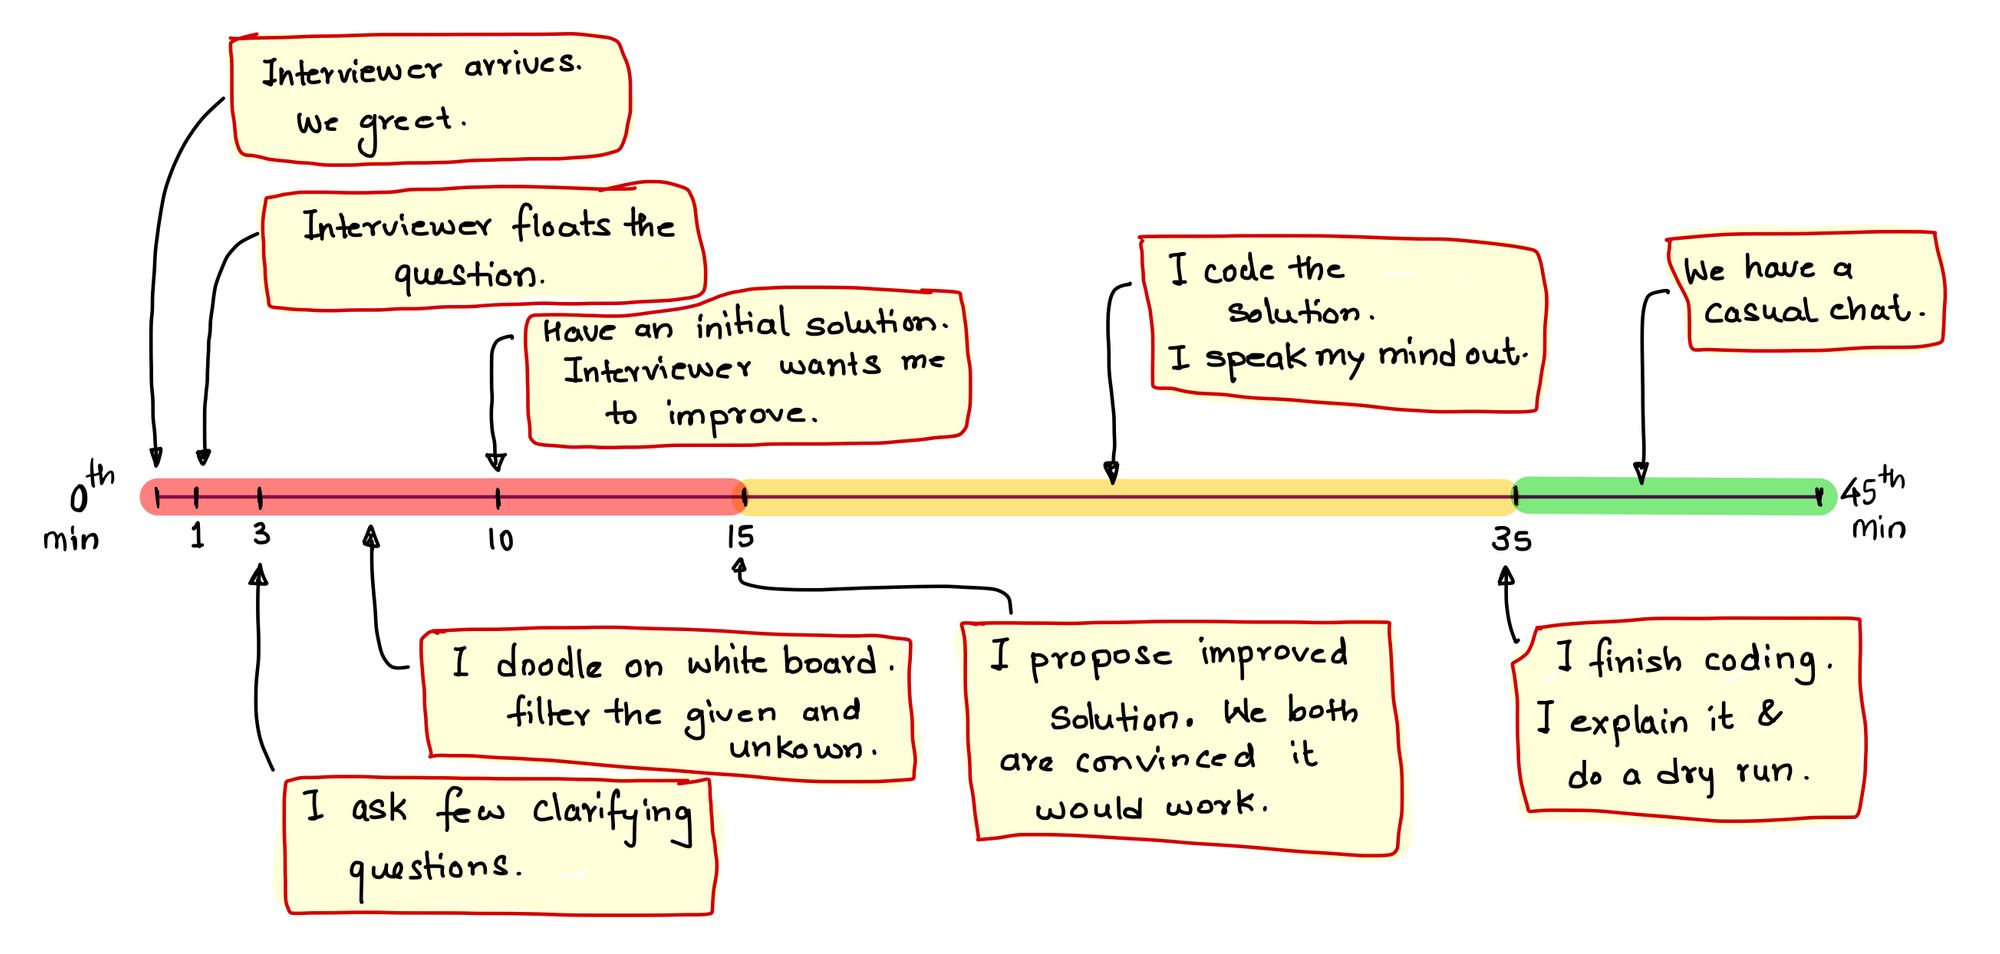 Interviewer arrives.
We greet.
Interviewer floats the
question.
Have an initial solution.
Interviewer wants me
to improve.
I code the
solution.
I speak my mind out.
We have a
casual chat.
0th
min
1
3
10
15
35
45th
min
I doodle on white board.
filter the given and
unkown.
I ask few clarifying
questions.
I propose improved
solution. We both
are convinced it
would work.
I finish coding.
I explain it &
do a dry run.